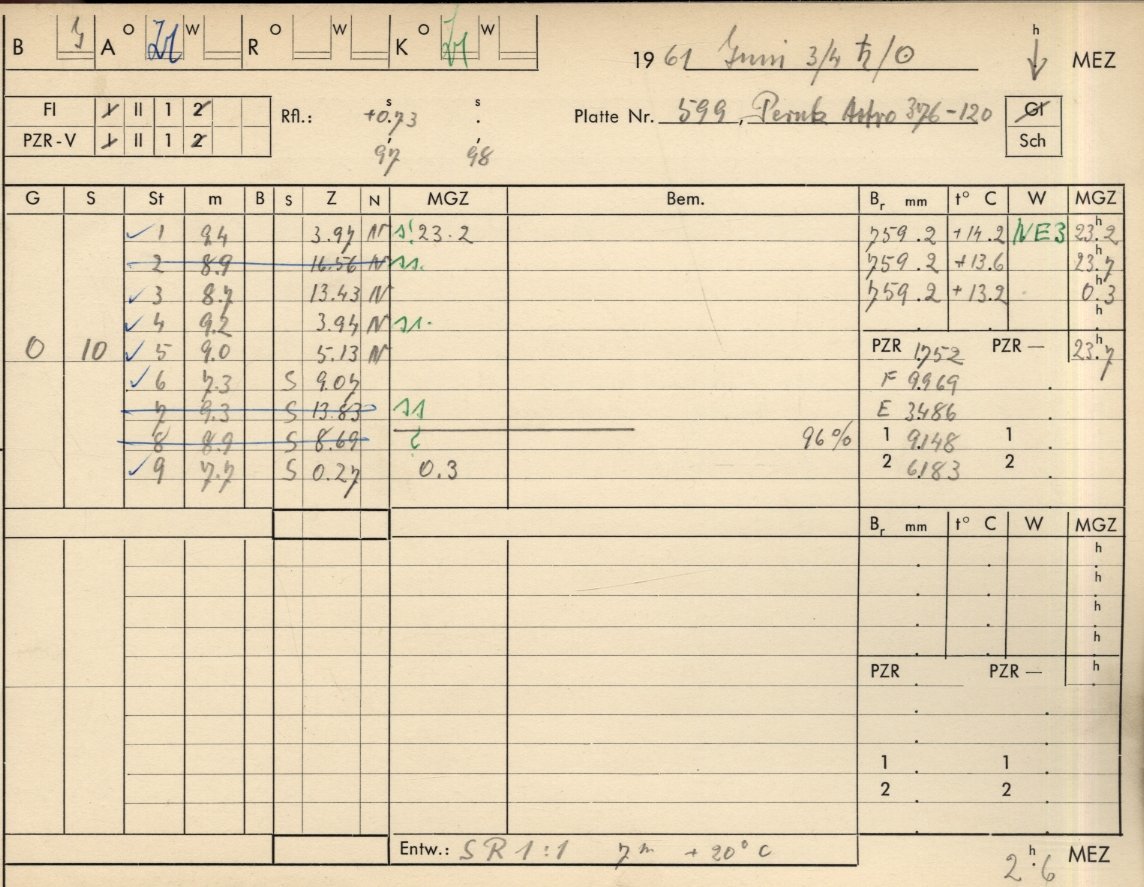 B A O W R O W K O W 1961 Juni 3/4 ♄/☉ h MEZ
Fl I II 1 2 Rfl.: +0.73 s s . Platte Nr. 599, Perutz Astro 376-120 Gl
PZR-V I II 1 2 97 98 Sch
G S St m B S Z N MGZ Bem. Br mm t° C W MGZ
1 9.4 3.97 N s! 23.2 759.2 +14.2 NE3 23.2 h
2 8.9 16.56 N ss. 759.2 +13.6 23.7 h
3 8.7 13.43 N 759.2 +13.2 0.3 h
4 9.2 3.94 N ss. h
0 10 5 9.0 5.13 N PZR 1.752 PZR — 23.7 h
6 7.3 S 9.07 F 9.969
7 9.3 S 13.83 ss E 3.486
8 8.9 S 8.69 ? 96% 1 9.148 1
9 7.7 S 0.27 0.3 2 6.183 2
Br mm t° C W MGZ
h
h
h
h
PZR PZR — h
1 1
2 2
Entw.: SR 1:1 7m +20° C
2.6 h MEZ